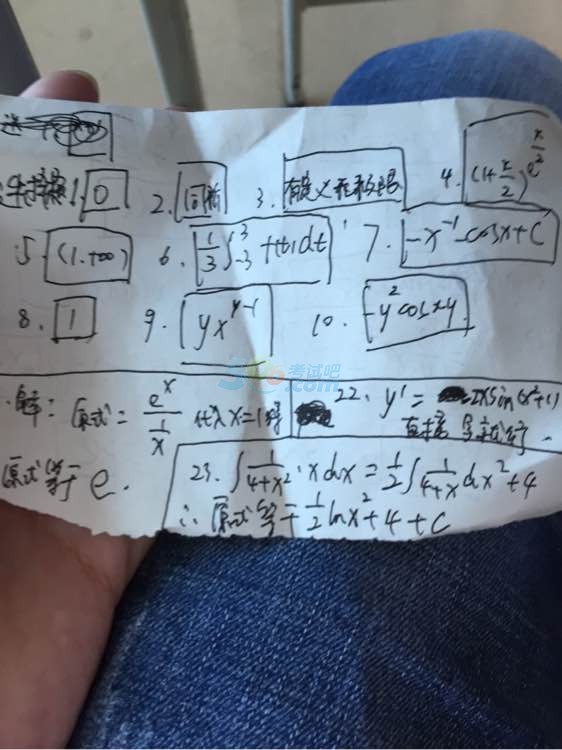 选择题1. 0 2. 同前 3. 有定义 4. (1+x/2)e^(x/2)
5. (1.+∞) 6. 1/3∫₋₃³ f(t)dt 7. -x⁻¹-cosx+C
8. 1 9. yx^(y-1) 10. -y²cosxy
解: 原式= e^x / (1/x) 代入x=1得 22. y'= -2xsin(x²+1)
直接
原式等于 e. 23. ∫ 1/(4+x²) · xdx = 1/2 ∫ 1/(4+x) dx²+4
∴ 原式等于 1/2 lnx²+4+C
考试吧
.com